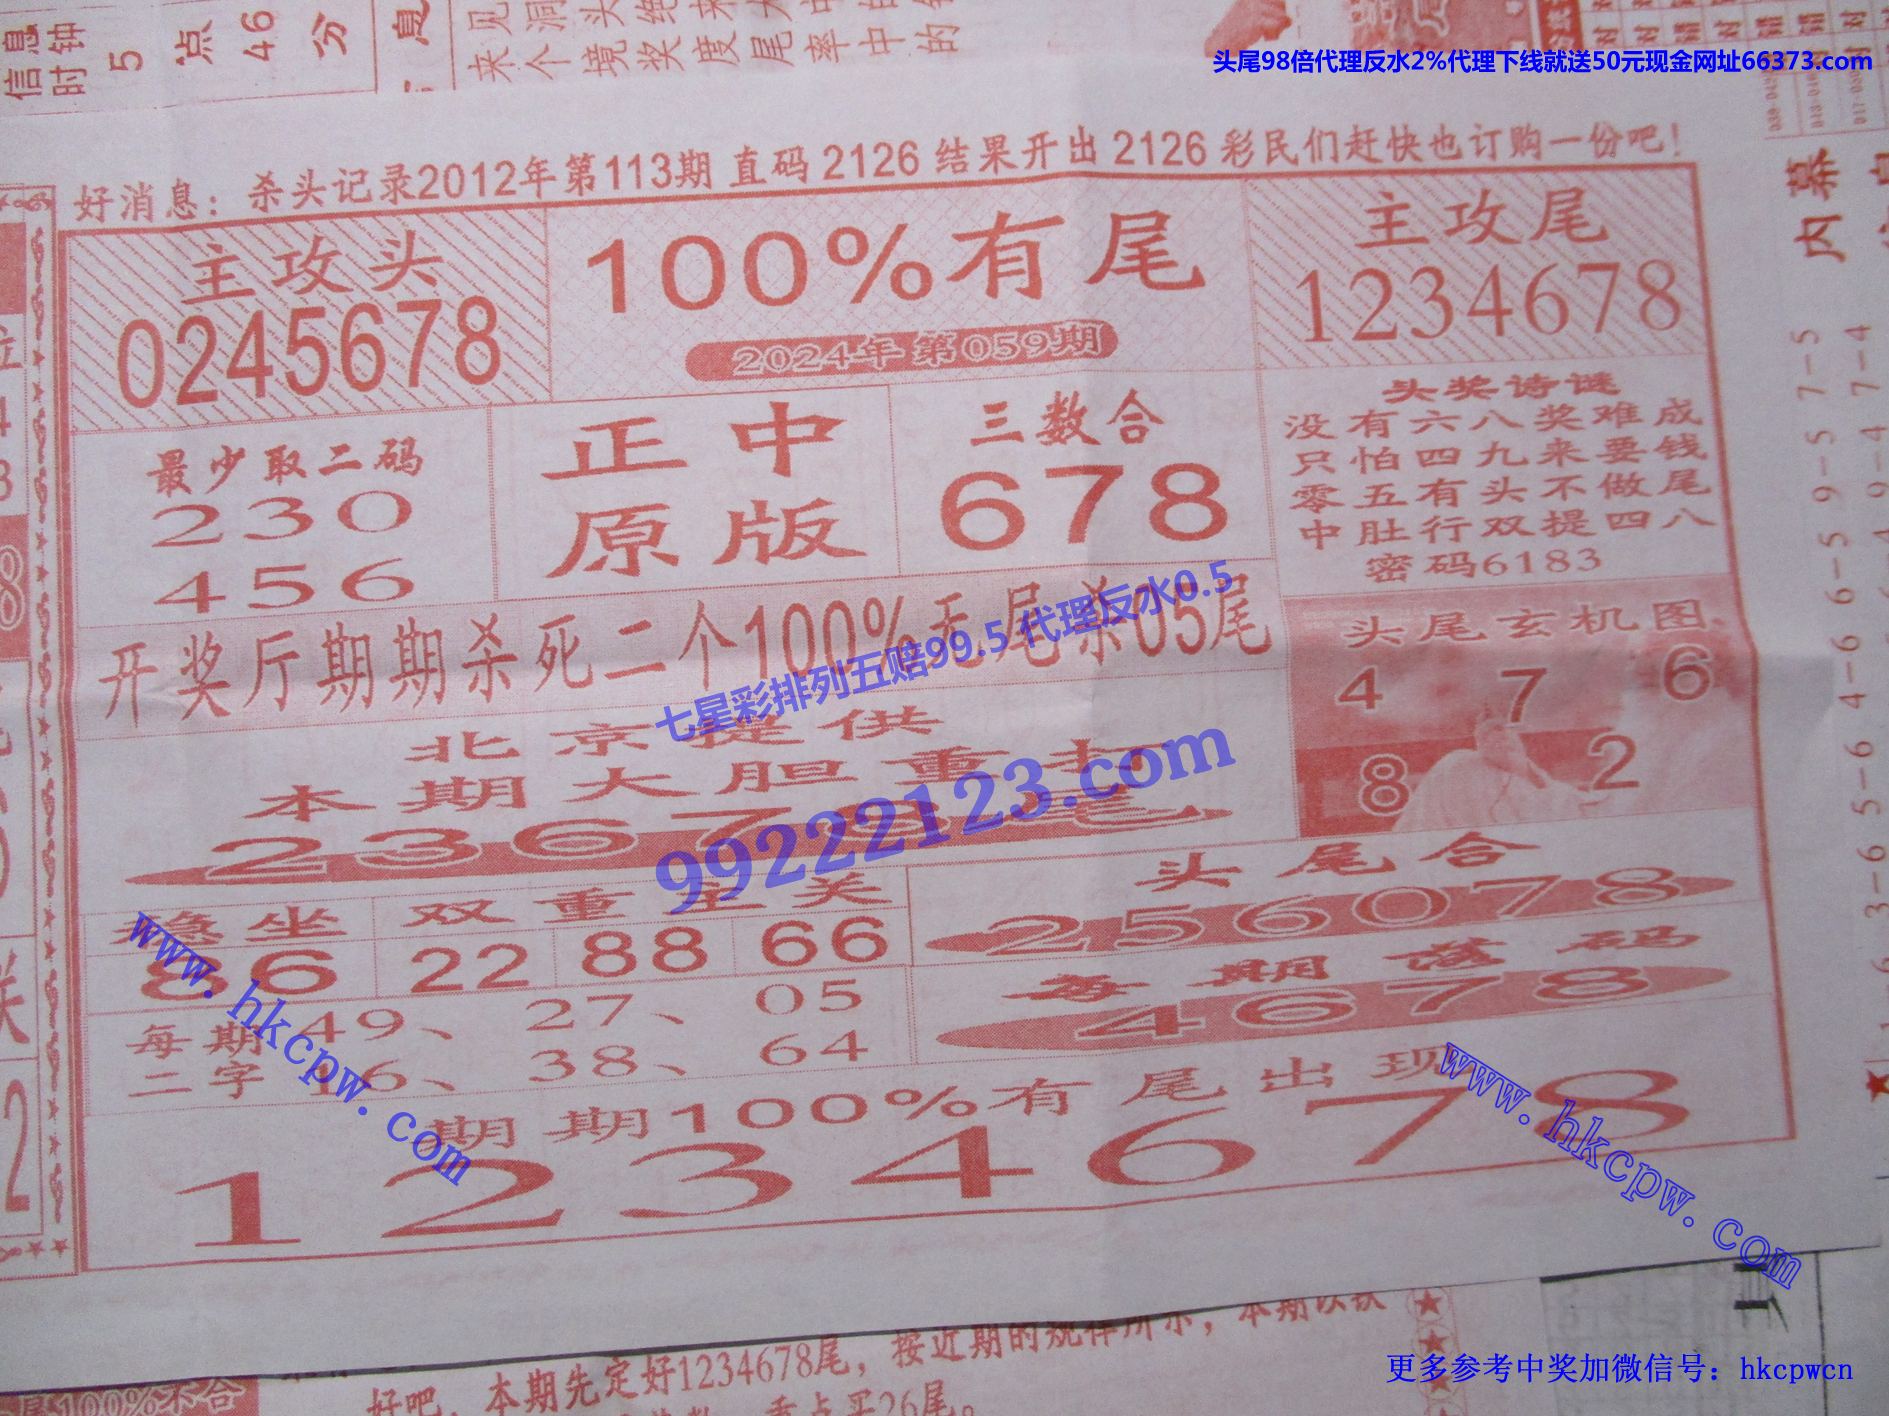 信息
时钟
5
点
46
分
息
头尾98倍代理反水2%代理下线就送50元现金网址66373.com
好消息：杀头记录2012年第113期 直码 2126 结果开出 2126 彩民们赶快也订购一份吧！
主攻头
0245678
100%有尾
2024年 第059期
主攻尾
1234678
最少取二码
230
456
正中
原版
三数合
678
头奖诗谜
没有六八奖难成
只怕四九来要钱
零五有头不做尾
中肚行双提四八
密码6183
开奖厅期期杀死二个100%无尾杀05尾
头尾玄机图
4 7 6
8 2
七星彩排列五赔99.5 代理反水0.5
99222123.com
北京提供
本期大胆重打
23678尾
稳坐
86
双重主关
22 88 66
头尾合
256078
每期落码
4678
每期
二字
49、 27、 05
16、 38、 64
期期100%有尾出现
1234678
www.hkcpw.com
www.hkcpw.com
内幕
7-5
9-5
6-5
4-6
5-6
3-6
7-4
9-4
好吧，本期先定好1234678尾，按近期的规律所示，本期以铁
尾100%不合
重点买26尾。
更多参考中奖加微信号：hkcpwcn